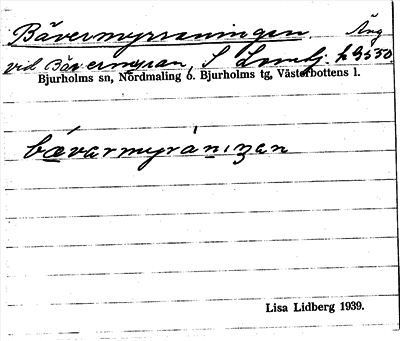 Bävermyrraningen. Äng
vid Bävermyran, S Lundsj. h 9550.
Bjurholms sn, Nordmaling o. Bjurholms tg, Västerbottens l.
bǽvarmyrànıŋən
Lisa Lidberg 1939.